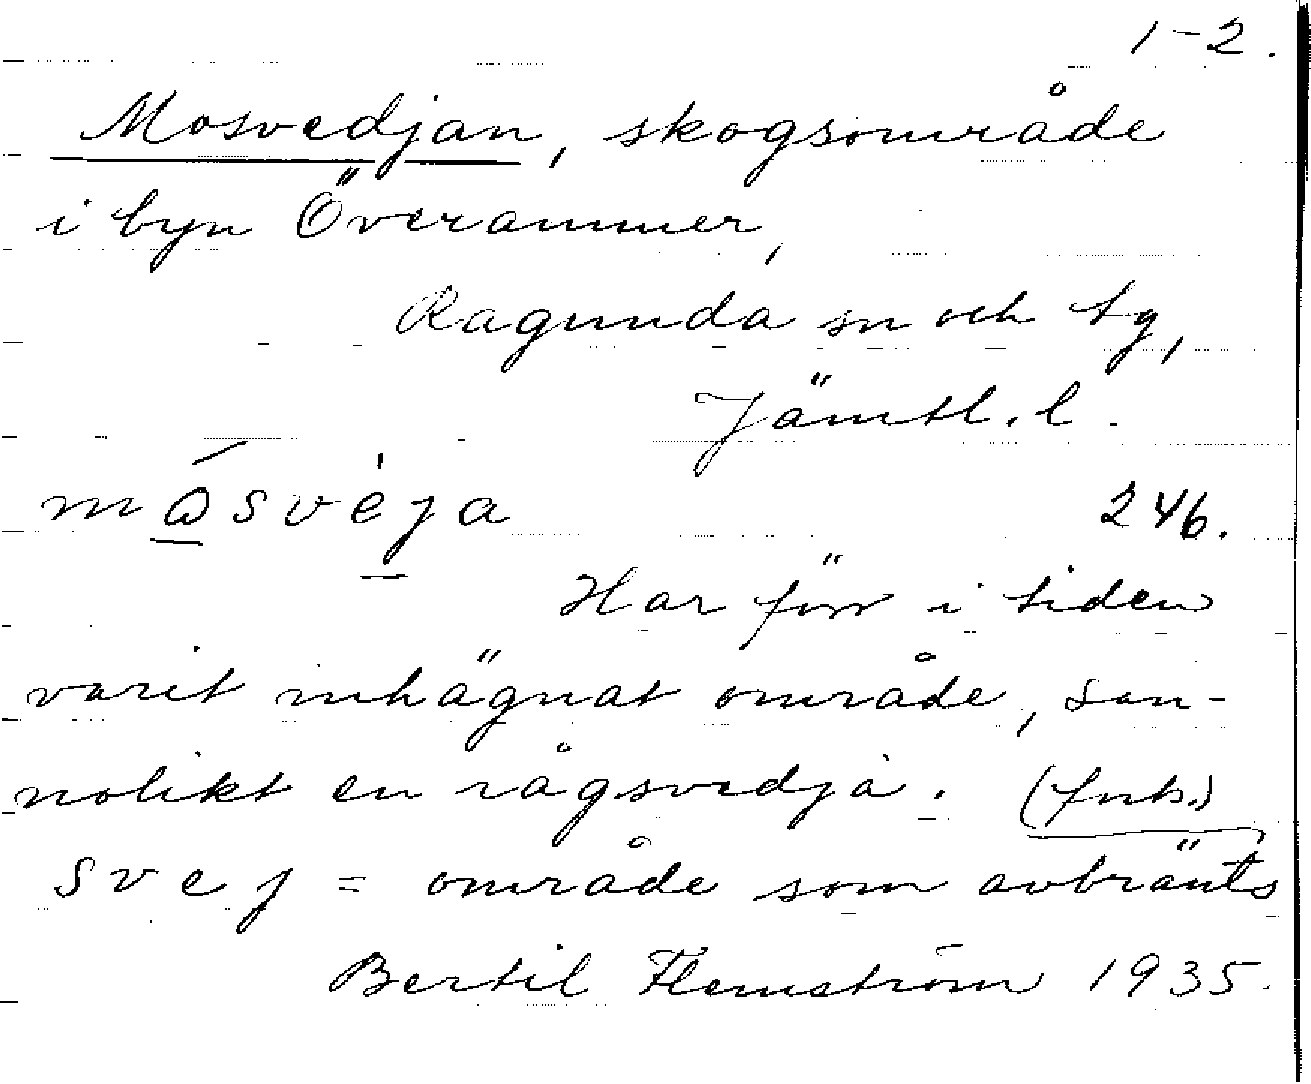 1-2.
Mosvedjan, skogsområde
i byn Överammer,
Ragunda sn och tg,
Jämtl. l.
måsvėja 246.
Har förr i tiden
varit inhägnat område, san-
nolikt en rågsvedja.
svej = område som avbränts
Bertil Flemström 1935.